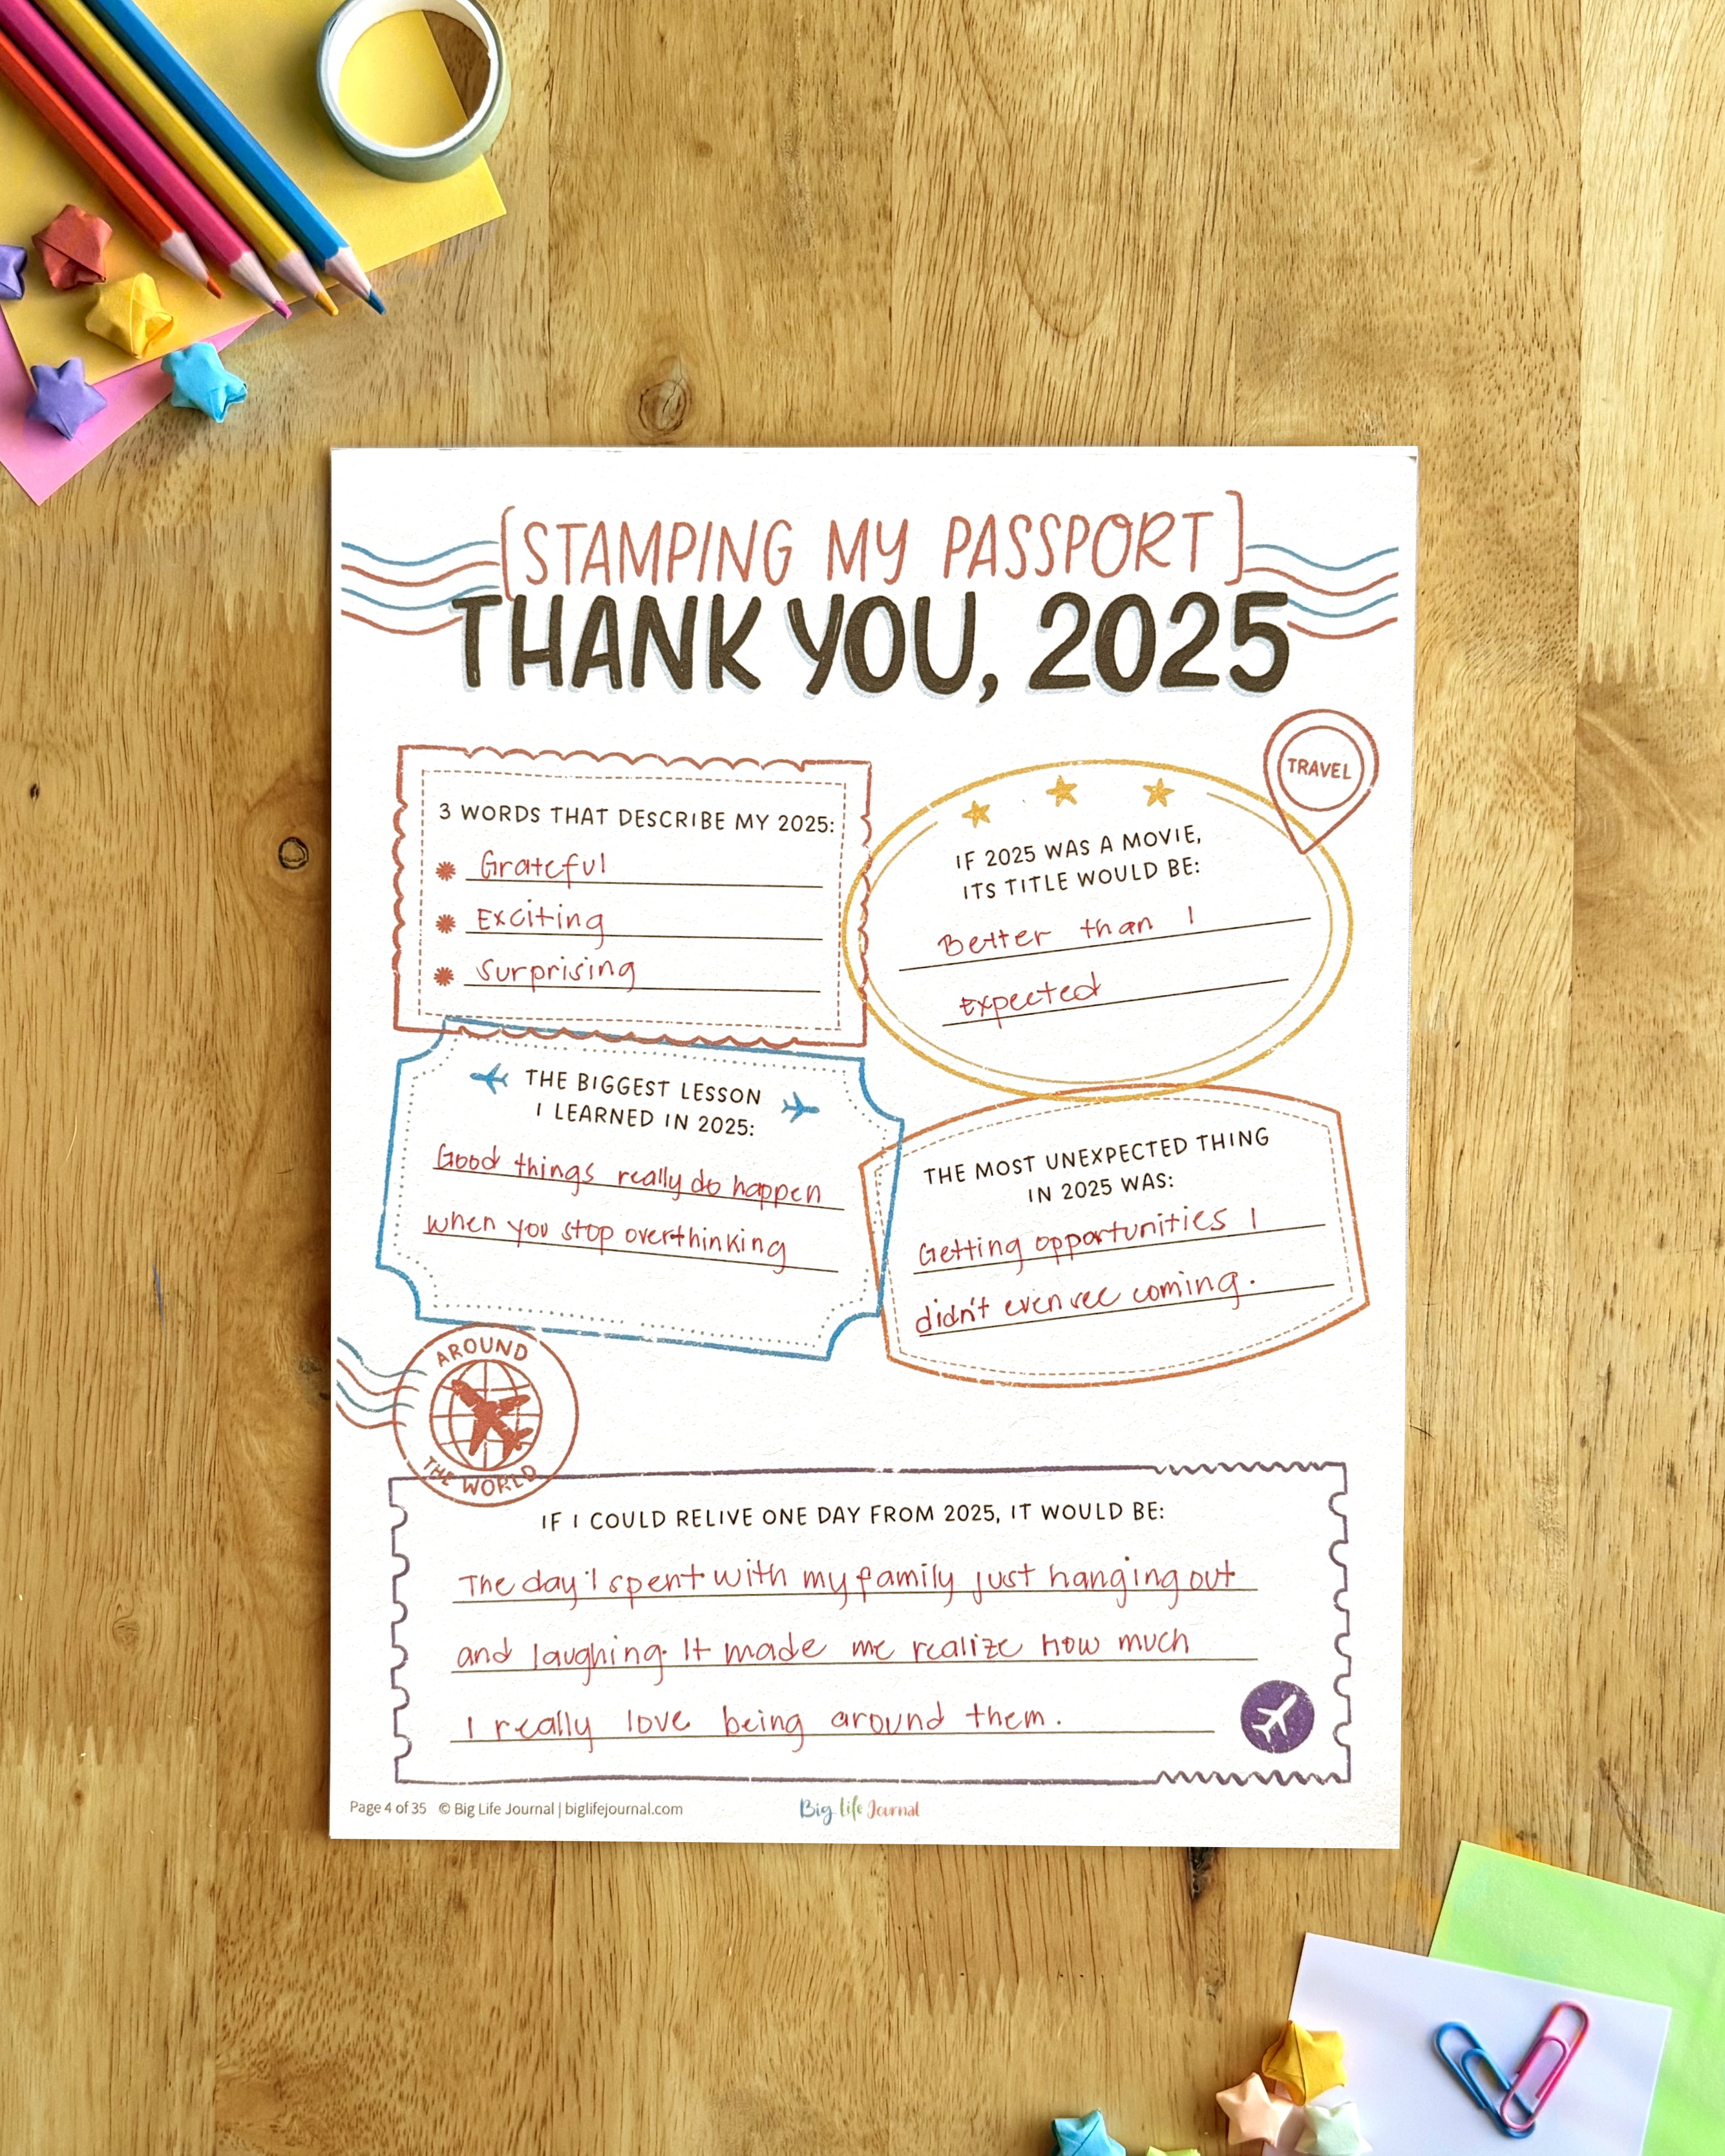 [STAMPING MY PASSPORT]
THANK YOU, 2025
3 WORDS THAT DESCRIBE MY 2025:
Grateful
Exciting
Surprising
TRAVEL
IF 2025 WAS A MOVIE,
ITS TITLE WOULD BE:
Better than I
Expected
THE BIGGEST LESSON
I LEARNED IN 2025:
Good things really do happen
when you stop overthinking
THE MOST UNEXPECTED THING
IN 2025 WAS:
Getting opportunities I
didn't even see coming.
AROUND
THE WORLD
IF I COULD RELIVE ONE DAY FROM 2025, IT WOULD BE:
The day I spent with my family just hanging out
and laughing. It made me realize how much
I really love being around them.
Page 4 of 35 © Big Life Journal | biglifejournal.com
Big Life Journal